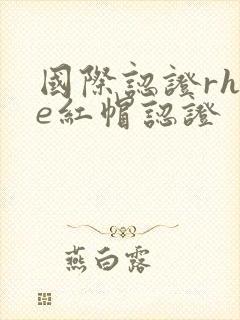 國際認證rh
e紅帽認證
燕白露